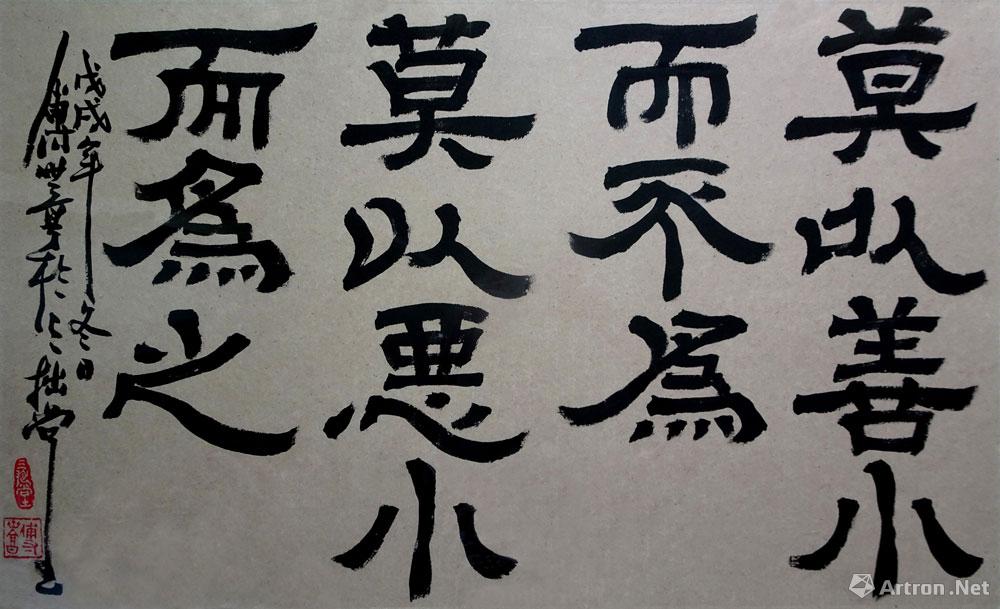 莫以善小
而不為
莫以悪小
而為之
戊戌年冬日
拙堂
Artron.Net